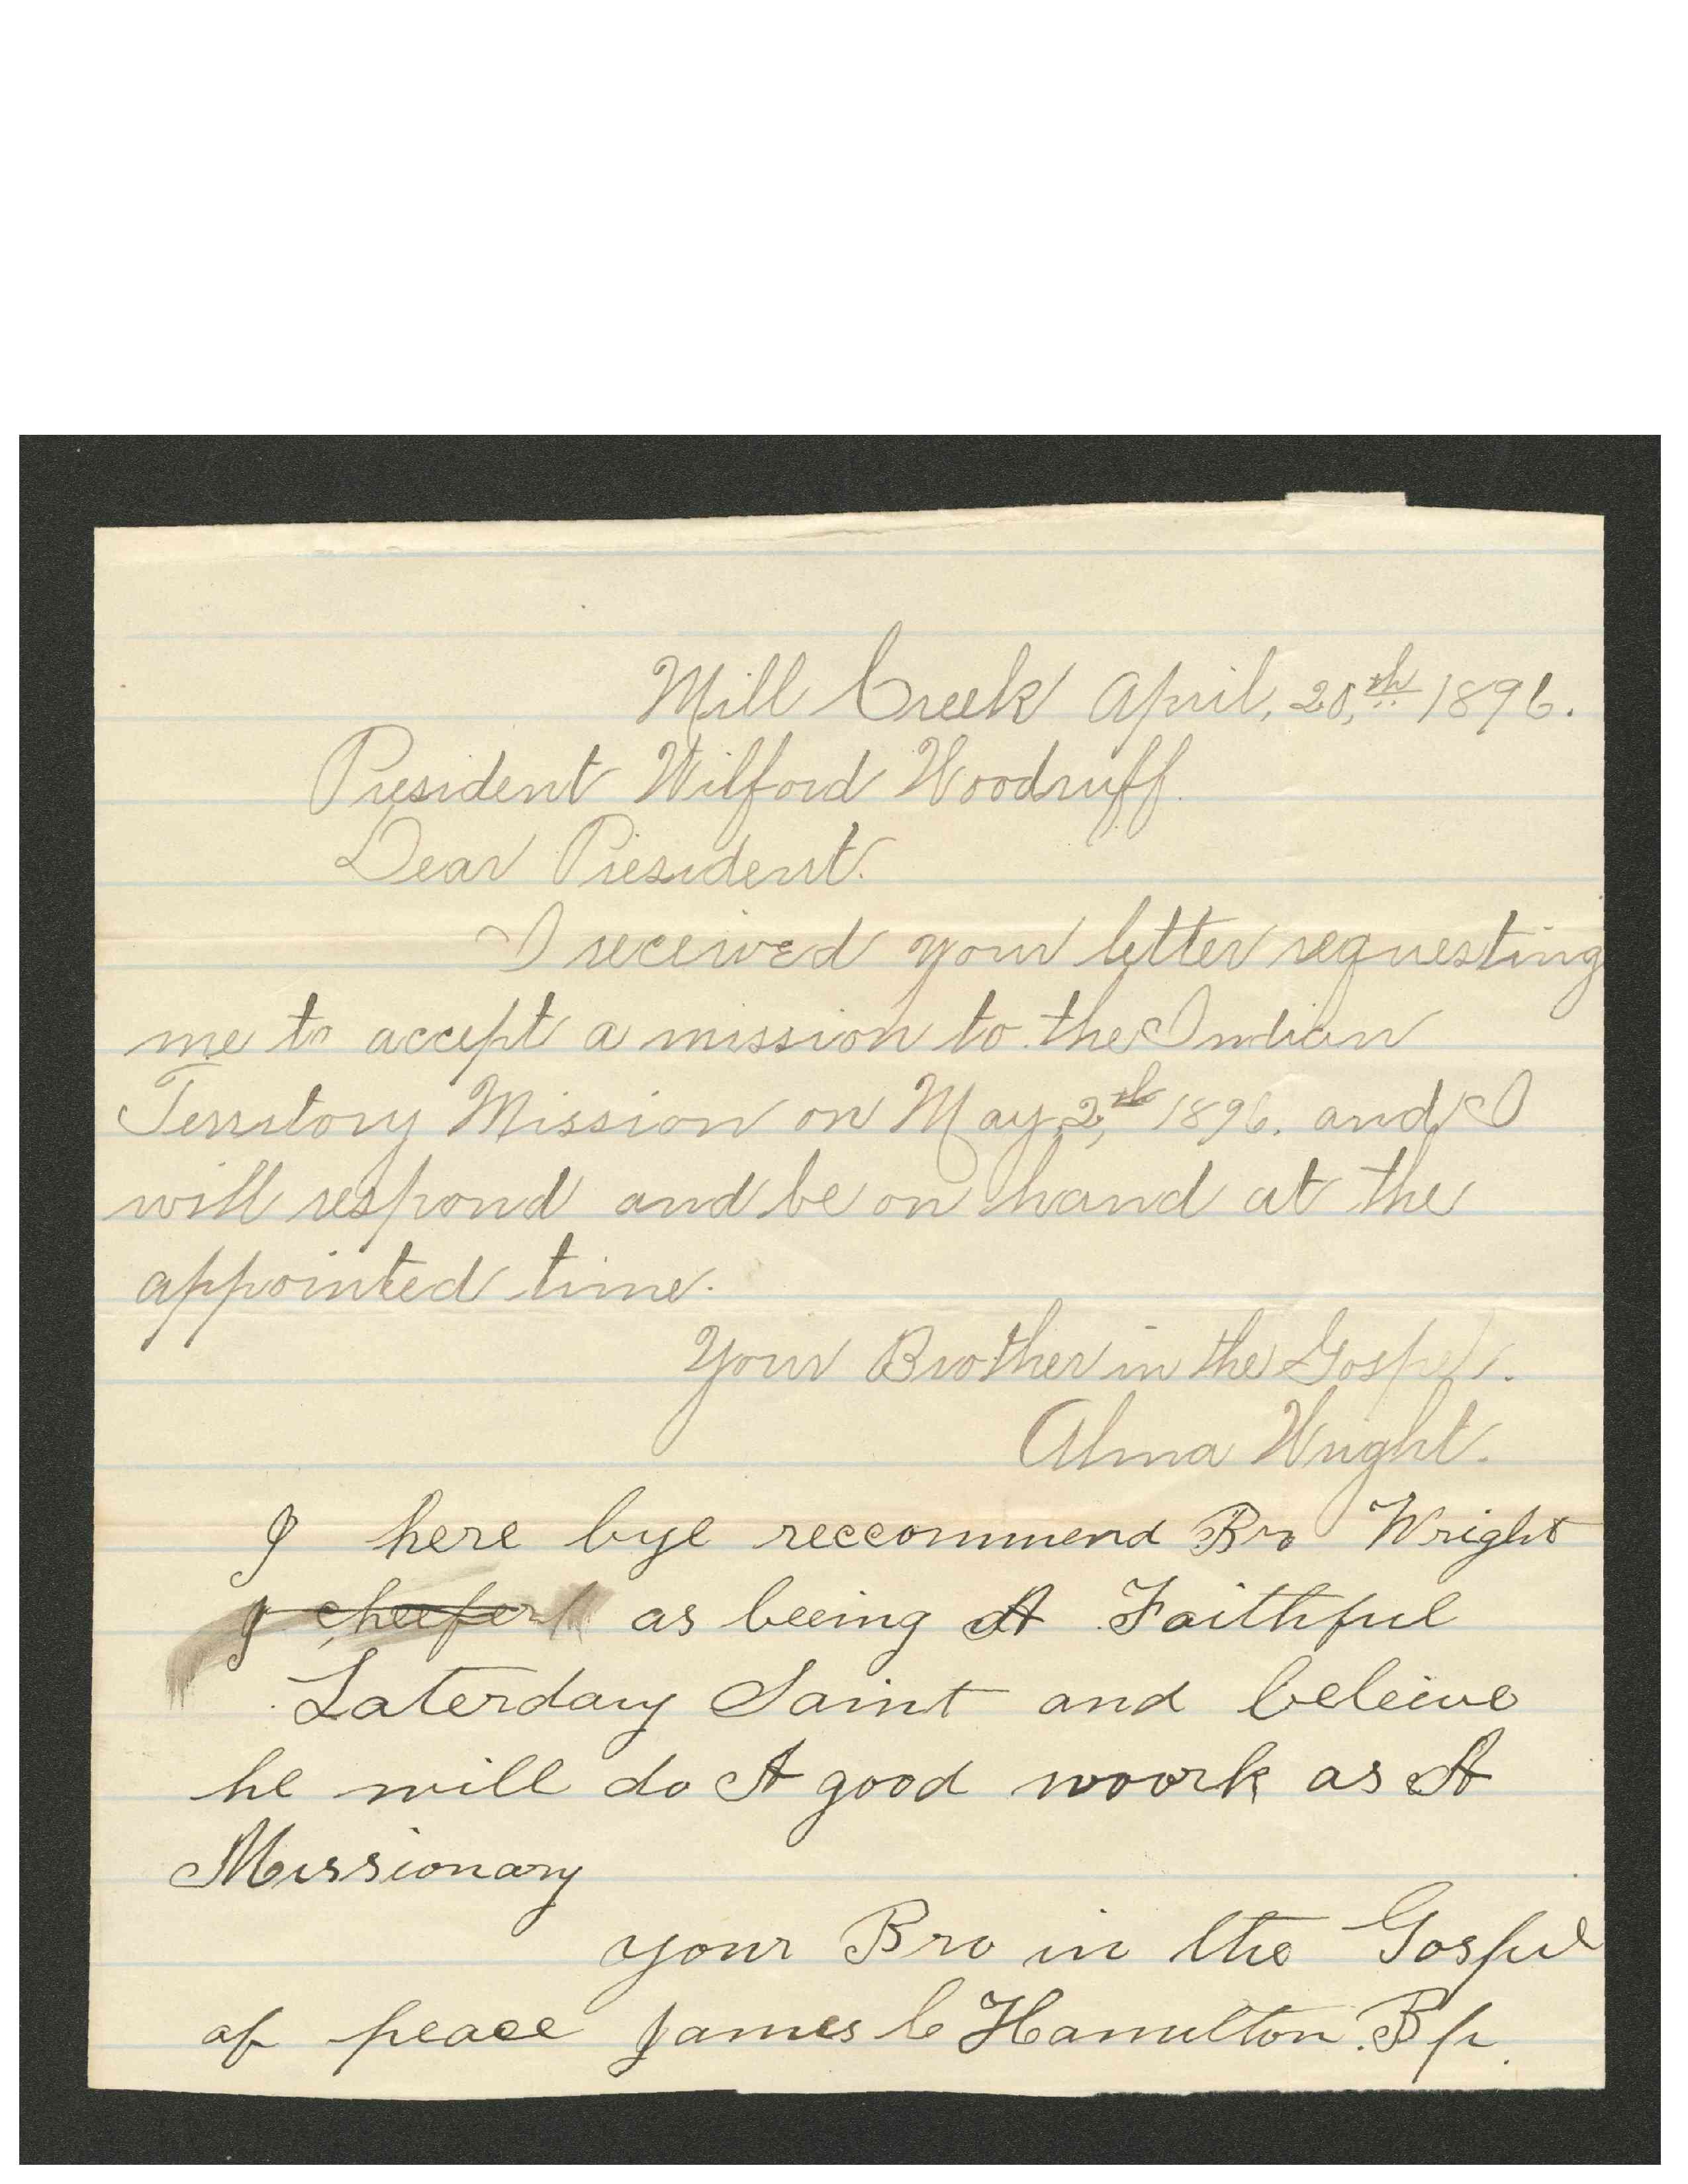 Mill Creek April, 20,th 1896.
President Wilford Woodruff.
Dear President.
I received your letter requesting
me to accept a mission to the Indian
Territory Mission on May 2,th 1896. and I
will respond and be on hand at the
appointed time.
Your Brother in the Gospel.
Alma Wright.
I here bye reccommend Bro Wright
as beeing A Faithful
Laterday Saint and beleive
he will do A good woork as A
Missionary
your Bro in the Gospel
of peace James C Hamilton. Bp.